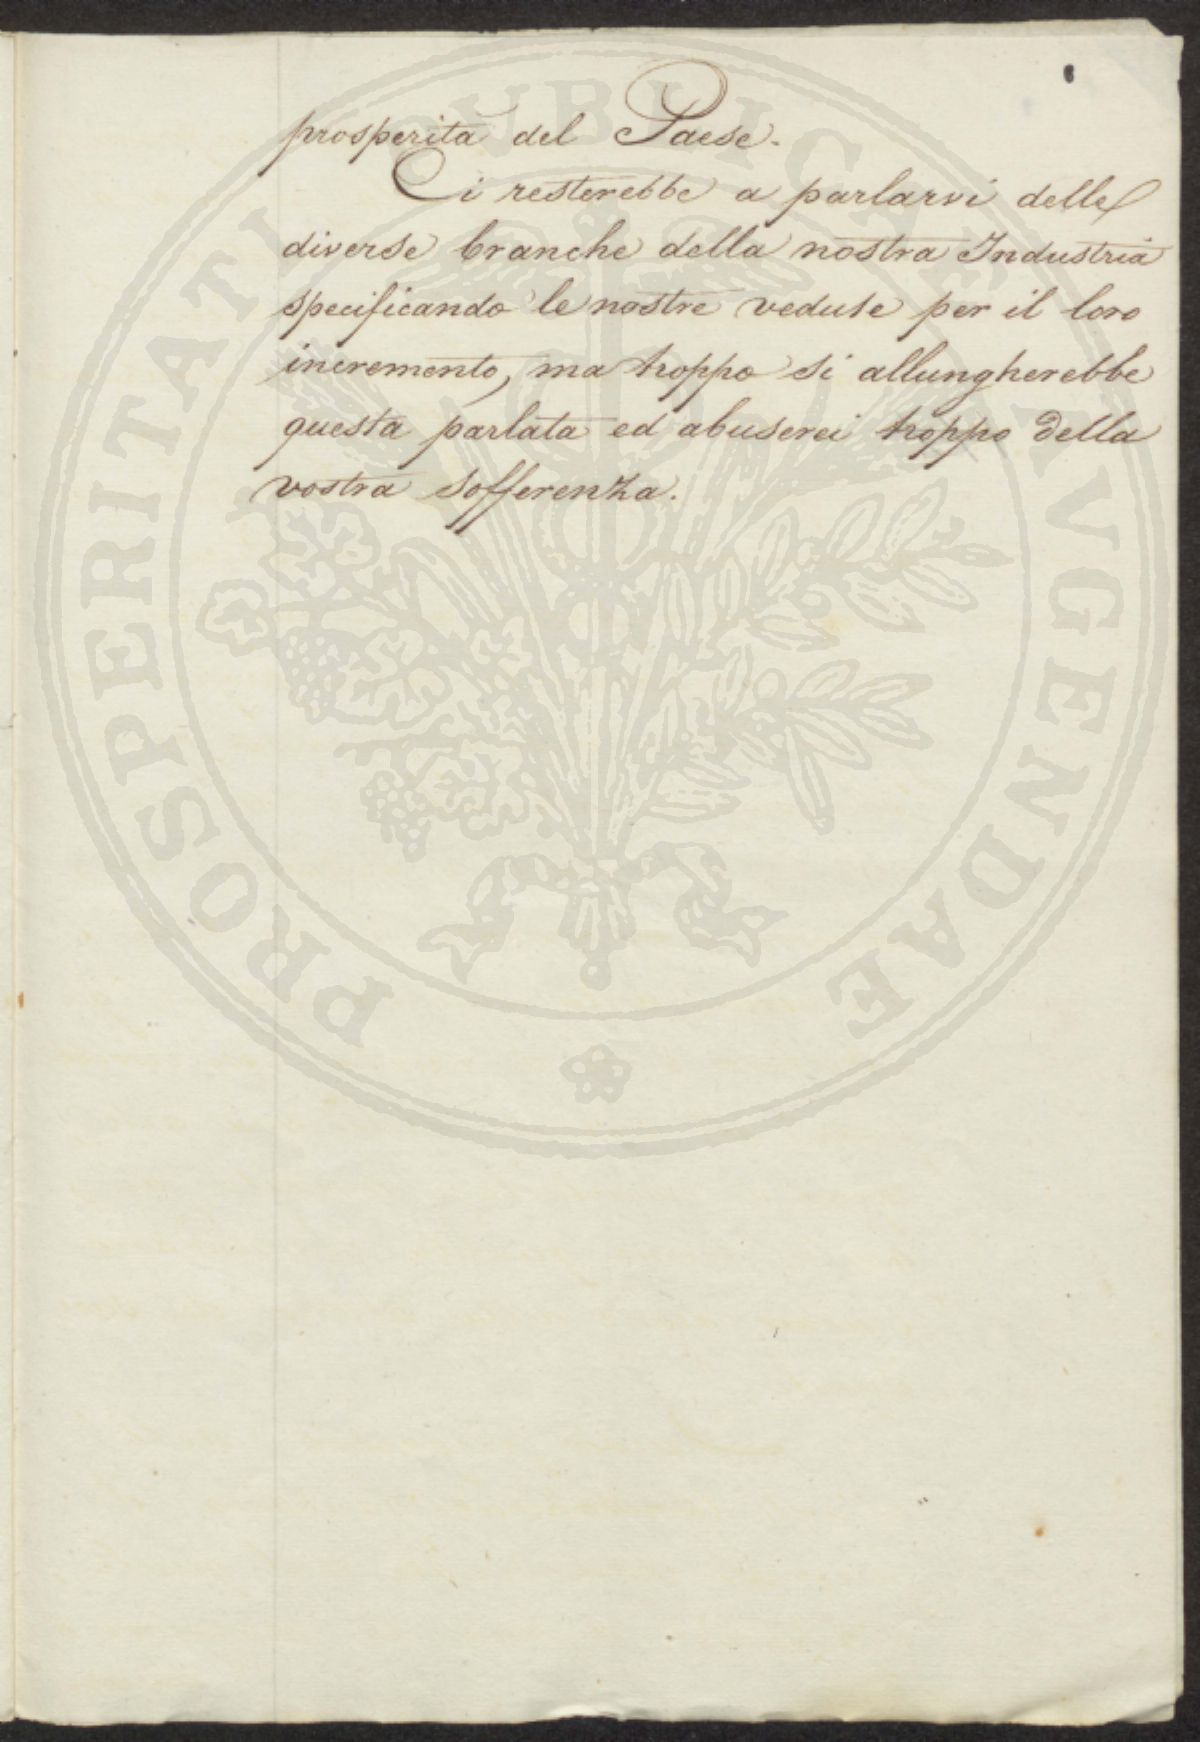 prosperità del Paese.
Ci resterebbe a parlarvi delle
diverse branche della nostra Industria
specificando le nostre vedute per il loro
incremento, ma troppo si allungherebbe
questa parlata ed abuserei troppo della
vostra sofferenza.
PROSPERITATI PVBLICAE AVGENDAE